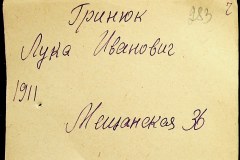 Гринюк 283
Лука Иванович
1911.
Мещанская 36